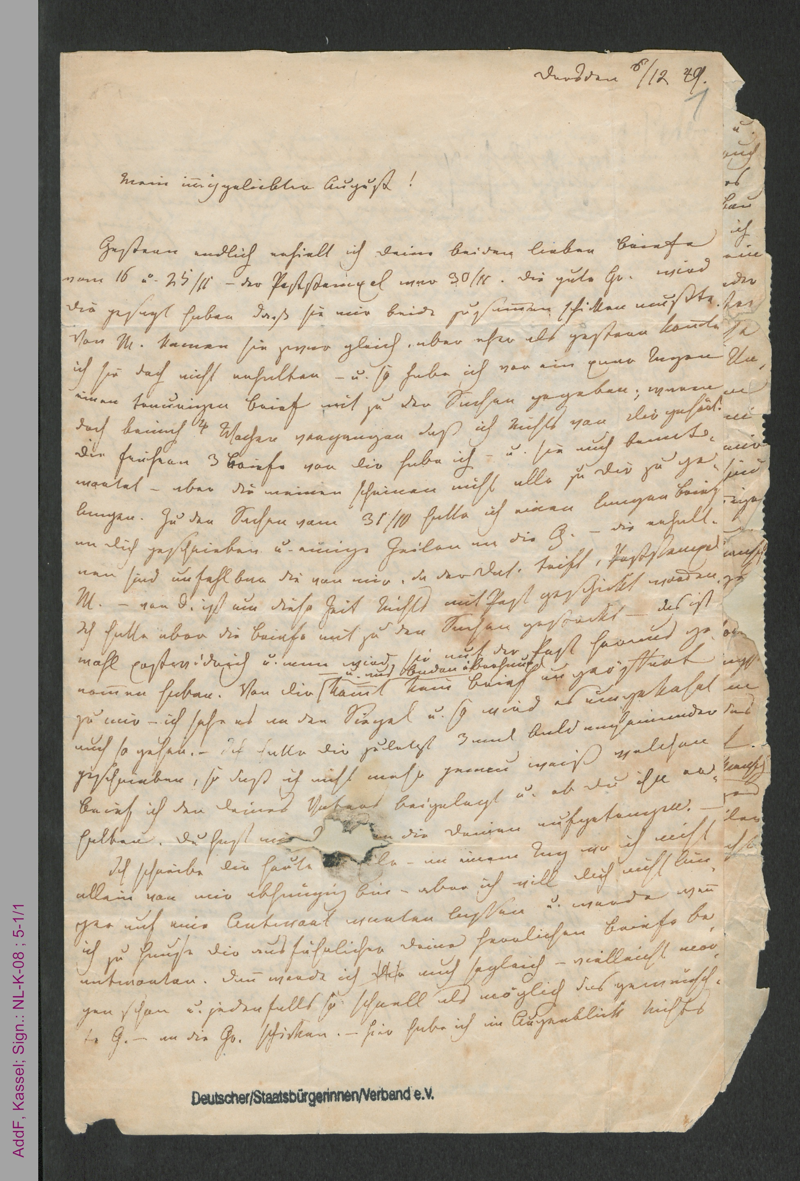 Dresden 8/12 49.
1
Mein inniggeliebter August!
Gestern endlich erhielt ich deine beiden lieben Briefe
vom 16 u. 25/11 – der Poststempel war 30/11. Die gute Gr. wird
dir gesagt haben daß sie mir beide zusammen schicken mußte.
Von M. kamen sie zwar gleich, aber eher als gestern konnte
ich sie doch nicht erhalten – u. so habe ich vor ein paar Tagen
einen traurigen Brief mit zu den Sachen gegeben; waren
doch beinah 4 Wochen vergangen daß ich Nichts von dir gehört.
Die frühern 3 Briefe von dir habe ich – u. sie auch beant-
wortet – aber die meinen scheinen nicht alle zu dir zu ge-
langen. Zu den Sachen vom 31/10 hatte ich einen langen Brief
an dich geschrieben u. einige Zeilen an die G. – die erhalt-
nen sind unfehlbar die von mir, da der Dat. trifft, Poststempel
M. – von D. ist um diese Zeit Nichts mit Post geschickt worden.
Ich hatte aber die Briefe mit zu den Sachen gesteckt – das ist
wohl postwidrich u. man wird sie auf der Post heraus ge-
nommen haben. Von dir kömt kein Brief uneröffnet
zu mir – ich sehe es an den Siegel u. so wird es umgekehrt
auch so gehen. – Ich hatte dir zuletzt 3 mal bald nacheinander
geschrieben, so daß ich nicht mehr genau weiß welchen
Brief ich den deines Vaters beigelegt u. ob du ihn er-
halten. Du hast mir die Deinen aufgetragen. –
Ich schreibe dir heute – an einem Tag wo ich nicht
allein von mir abhängig bin – aber ich will dich nicht län-
ger auf eine Antwort warten lassen u. werde wenn
ich zu Hause dir ausführlicher deine herrlichen Briefe be-
antworten. Dann werde ich auch sogleich – vielleicht mor-
gen schon u. jedenfalls so schnell als möglich das gewünsch-
te G. – an die Gr. schicken. – hier habe ich im Augenblick Nichts
Deutscher/Staatsbürgerinnen/Verband e.V.
AddF, Kassel; Sign.: NL-K-08 ; 5-1/1